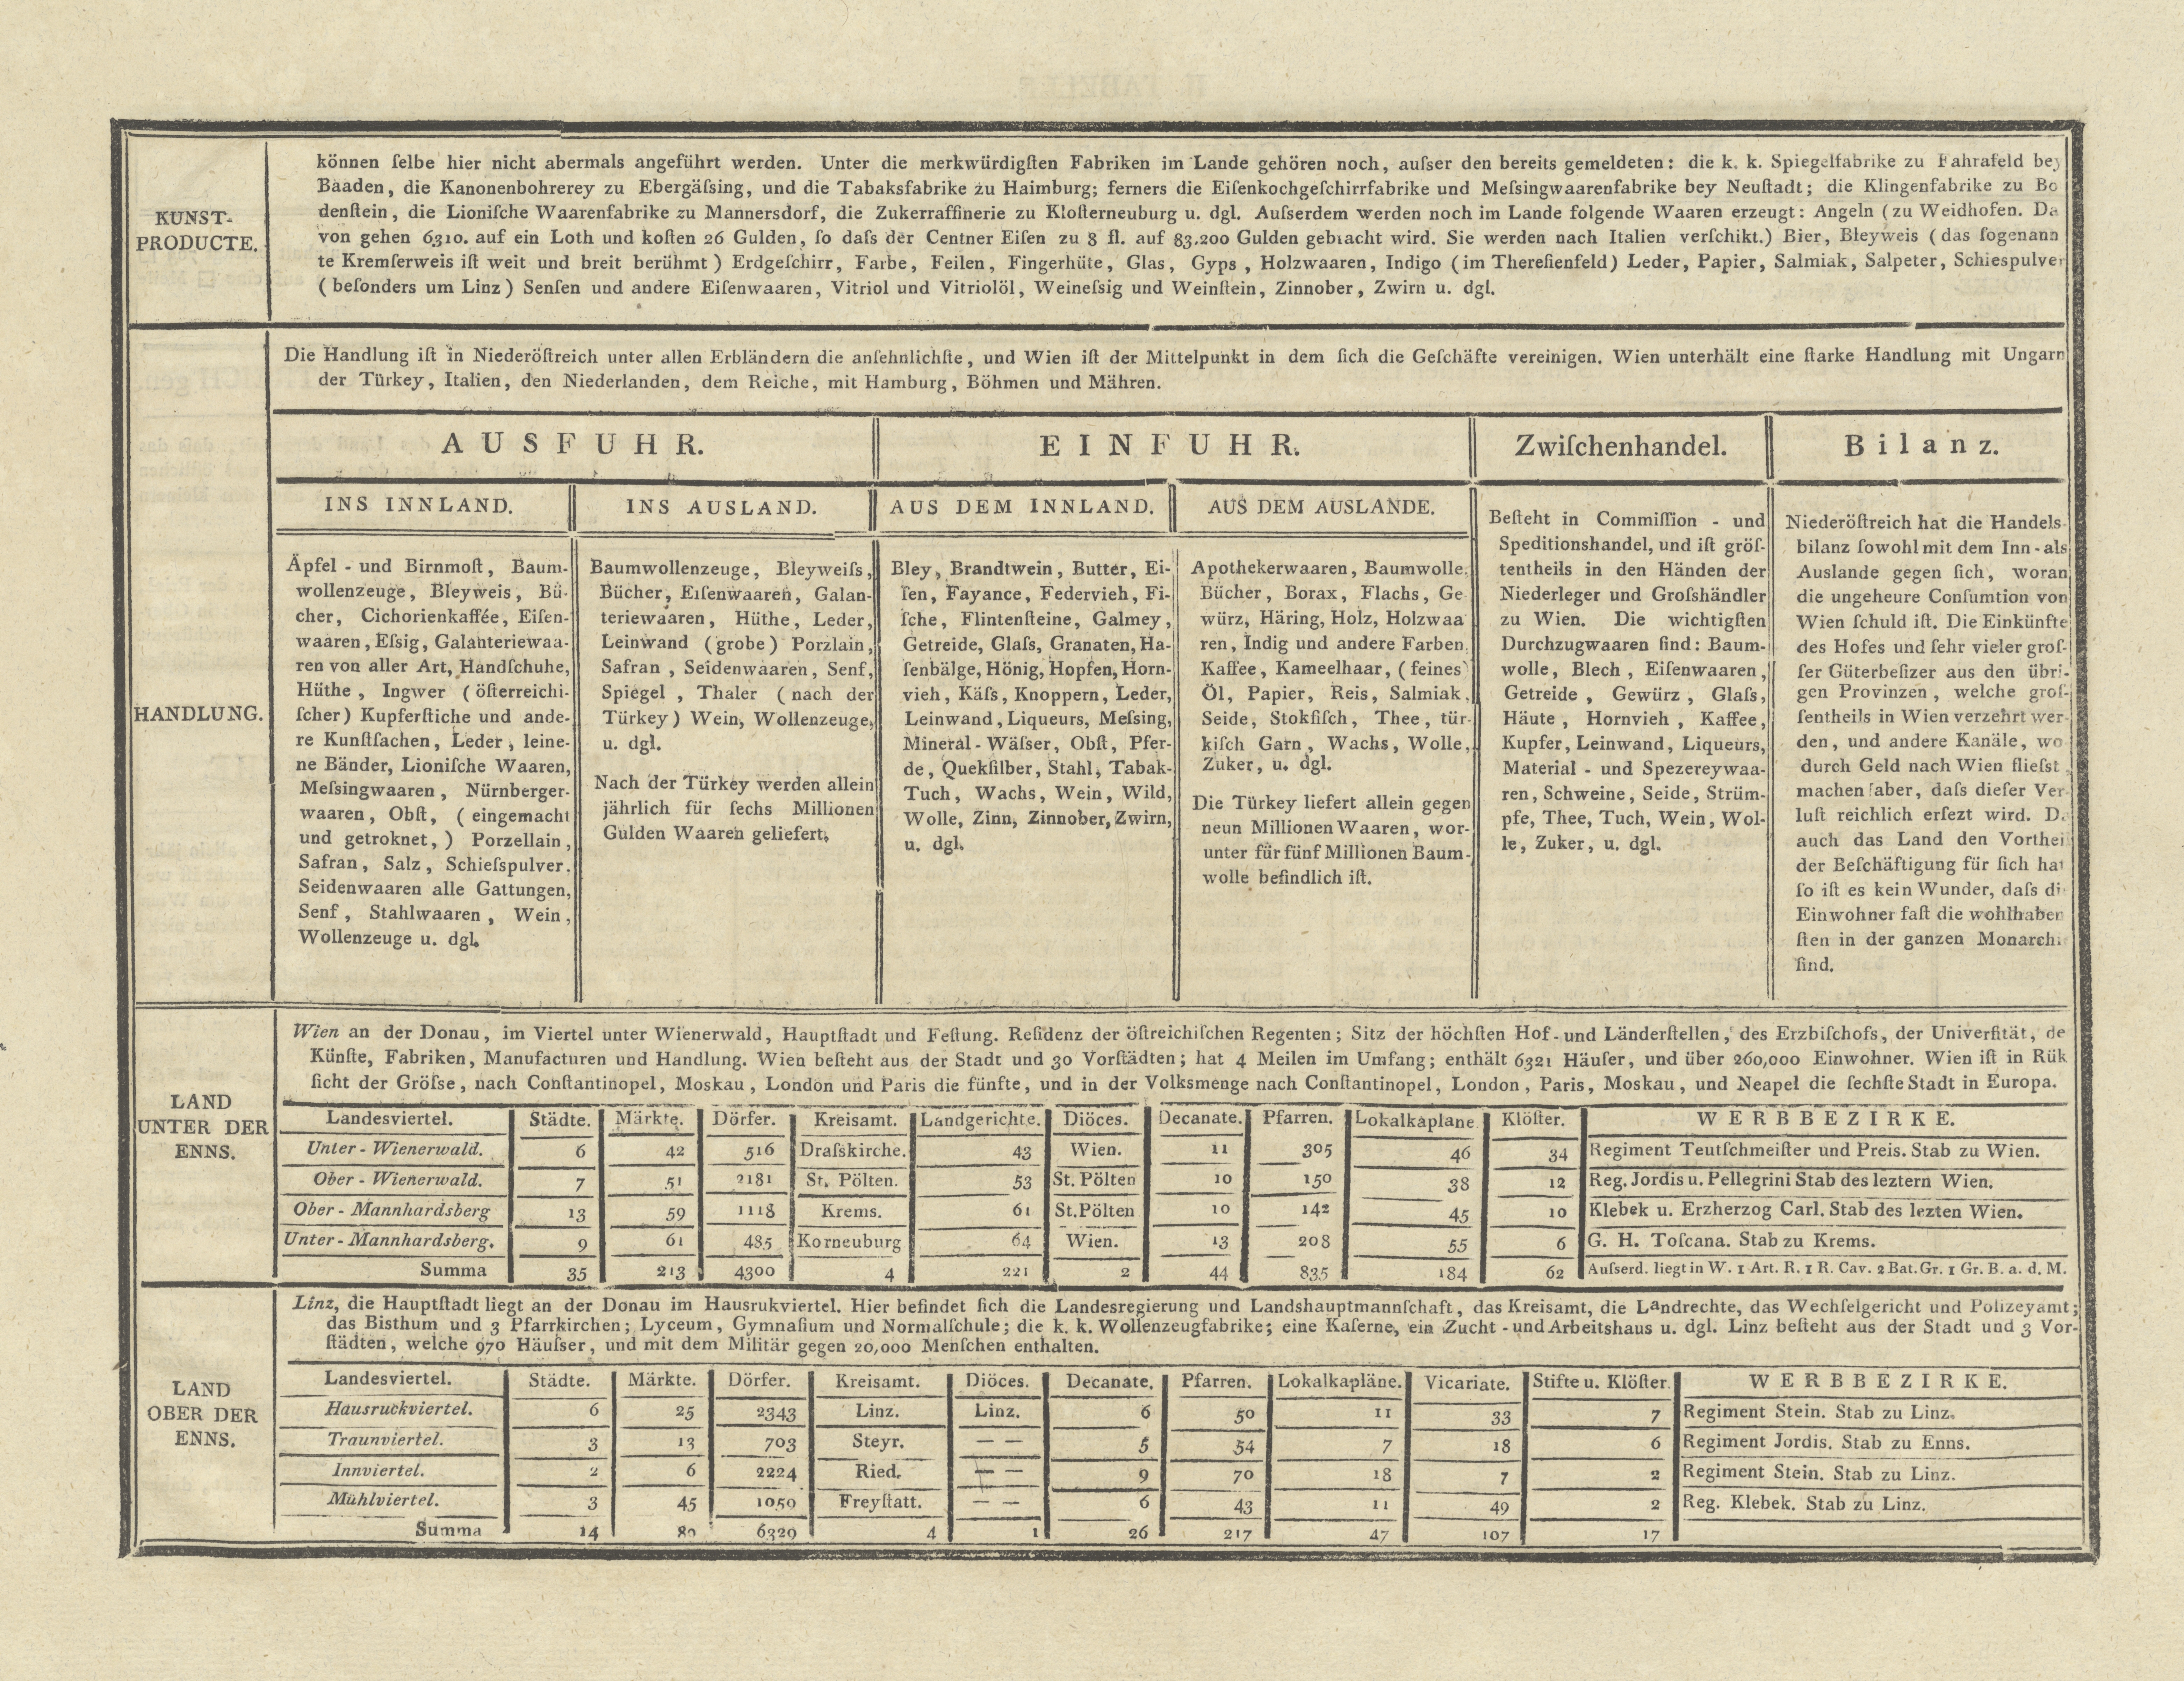 KUNST-
PRODUCTE.
können ſelbe hier nicht abermals angeführt werden. Unter die merkwürdigſten Fabriken im Lande gehören noch, auſser den bereits gemeldeten: die k. k. Spiegelfabrike zu Fahrafeld bey
Baaden, die Kanonenbohrerey zu Ebergäſsing, und die Tabaksfabrike zu Haimburg; ferners die Eiſenkochgeſchirrfabrike und Meſsingwaarenfabrike bey Neuſtadt; die Klingenfabrike zu Bo
denſtein, die Lioniſche Waarenfabrike zu Mannersdorf, die Zukerraffinerie zu Kloſterneuburg u. dgl. Auſserdem werden noch im Lande folgende Waaren erzeugt: Angeln (zu Weidhofen. Da
von gehen 6310. auf ein Loth und koſten 26 Gulden, ſo daſs der Centner Eiſen zu 8 fl. auf 83.200 Gulden gebracht wird. Sie werden nach Italien verſchikt.) Bier, Bleyweis (das ſogenann
te Kremſerweis iſt weit und breit berühmt) Erdgeſchirr, Farbe, Feilen, Fingerhüte, Glas, Gyps, Holzwaaren, Indigo (im Thereſienfeld) Leder, Papier, Salmiak, Salpeter, Schiespulver
(beſonders um Linz) Senſen und andere Eiſenwaaren, Vitriol und Vitriolöl, Weineſsig und Weinſtein, Zinnober, Zwirn u. dgl.
HANDLUNG.
Die Handlung iſt in Niederöſtreich unter allen Erbländern die anſehnlichſte, und Wien iſt der Mittelpunkt in dem ſich die Geſchäfte vereinigen. Wien unterhält eine ſtarke Handlung mit Ungarn
der Türkey, Italien, den Niederlanden, dem Reiche, mit Hamburg, Böhmen und Mähren.
AUSFUHR.
INS INNLAND.
Äpfel - und Birnmoſt, Baum-
wollenzeuge, Bleyweis, Bü-
cher, Cichorienkaffée, Eiſen-
waaren, Eſsig, Galanteriewaa-
ren von aller Art, Handſchuhe,
Hüthe, Ingwer (öſterreichi-
ſcher) Kupferſtiche und ande-
re Kunſtſachen, Leder, leine-
ne Bänder, Lioniſche Waaren,
Meſsingwaaren, Nürnberger-
waaren, Obſt, (eingemacht
und getroknet,) Porzellain,
Safran, Salz, Schieſspulver.
Seidenwaaren alle Gattungen,
Senf, Stahlwaaren, Wein,
Wollenzeuge u. dgl.
INS AUSLAND.
Baumwollenzeuge, Bleyweiſs,
Bücher, Eiſenwaaren, Galan-
teriewaaren, Hüthe, Leder,
Leinwand (grobe) Porzlain,
Safran, Seidenwaaren, Senf,
Spiegel, Thaler (nach der
Türkey) Wein, Wollenzeuge,
u. dgl.
Nach der Türkey werden allein
jährlich für ſechs Millionen
Gulden Waaren geliefert.
EINFUHR.
AUS DEM INNLAND.
Bley, Brandtwein, Butter, Ei-
ſen, Fayance, Federvieh, Fi-
ſche, Flintenſteine, Galmey,
Getreide, Glaſs, Granaten, Ha-
ſenbälge, Hönig, Hopfen, Horn-
vieh, Käſs, Knoppern, Leder,
Leinwand, Liqueurs, Meſsing,
Mineral-Wäſser, Obſt, Pfer-
de, Quekſilber, Stahl, Tabak-
Tuch, Wachs, Wein, Wild,
Wolle, Zinn, Zinnober, Zwirn,
u. dgl.
AUS DEM AUSLANDE.
Apothekerwaaren, Baumwolle,
Bücher, Borax, Flachs, Ge
würz, Häring, Holz, Holzwaa
ren, Indig und andere Farben,
Kaffee, Kameelhaar, (feines)
Öl, Papier, Reis, Salmiak,
Seide, Stokfiſch, Thee, tür-
kiſch Garn, Wachs, Wolle,
Zuker, u. dgl.
Die Türkey liefert allein gegen
neun Millionen Waaren, wor-
unter für fünf Millionen Baum-
wolle befindlich iſt.
Zwiſchenhandel.
Beſteht in Commiſſion - und
Speditionshandel, und iſt gröſ-
tentheils in den Händen der
Niederleger und Groſshändler
zu Wien. Die wichtigſten
Durchzugwaaren ſind: Baum-
wolle, Blech, Eiſenwaaren,
Getreide, Gewürz, Glaſs,
Häute, Hornvieh, Kaffee,
Kupfer, Leinwand, Liqueurs,
Material - und Spezereywaa-
ren, Schweine, Seide, Strüm-
pfe, Thee, Tuch, Wein, Wol-
le, Zuker, u. dgl.
Bilanz.
Niederöſtreich hat die Handels-
bilanz ſowohl mit dem Inn-als
Auslande gegen ſich, woran
die ungeheure Conſumtion von
Wien ſchuld iſt. Die Einkünfte
des Hofes und ſehr vieler groſ-
ſer Güterbeſizer aus den übri-
gen Provinzen, welche groſ-
ſentheils in Wien verzehrt wer-
den, und andere Kanäle, wo
durch Geld nach Wien flieſst,
machen aber, daſs dieſer Ver-
luſt reichlich erſezt wird. D.
auch das Land den Vorthei
der Beſchäftigung für ſich hat
ſo iſt es kein Wunder, daſs di
Einwohner faſt die wohlhaben
ſten in der ganzen Monarchi
ſind.
LAND
UNTER DER
ENNS.
Wien an der Donau, im Viertel unter Wienerwald, Hauptſtadt und Feſtung. Reſidenz der öſtreichiſchen Regenten; Sitz der höchſten Hof-und Länderſtellen, des Erzbiſchofs, der Univerſität, de
Künſte, Fabriken, Manufacturen und Handlung. Wien beſteht aus der Stadt und 30 Vorſtädten; hat 4 Meilen im Umfang; enthält 6321 Häuſer, und über 260,000 Einwohner. Wien iſt in Rük
ſicht der Gröſse, nach Conſtantinopel, Moskau, London und Paris die fünfte, und in der Volksmenge nach Conſtantinopel, London, Paris, Moskau, und Neapel die ſechſte Stadt in Europa.
Landesviertel. Städte. Märkte. Dörfer. Kreisamt. Landgerichte. Diöces. Decanate. Pfarren. Lokalkaplane Klöſter. WERBBEZIRKE.
Unter-Wienerwald. 6 42 516 Draſskirche. 43 Wien. 11 305 46 34 Regiment Teutſchmeiſter und Preis. Stab zu Wien.
Ober-Wienerwald. 7 51 2181 St. Pölten. 53 St. Pölten 10 150 38 12 Reg. Jordis u. Pellegrini Stab des leztern Wien.
Ober-Mannhardsberg 13 59 1118 Krems. 61 St.Pölten 10 142 45 10 Klebek u. Erzherzog Carl. Stab des lezten Wien.
Unter-Mannhardsberg. 9 61 485 Korneuburg 64 Wien. 13 208 55 6 G. H. Toſcana. Stab zu Krems.
Summa 35 213 4300 4 221 2 44 835 184 62 Auſserd. liegt in W. 1 Art. R. 1 R. Cav. 2 Bat. Gr. 1 Gr. B. a. d. M.
LAND
OBER DER
ENNS.
Linz, die Hauptſtadt liegt an der Donau im Hausrukviertel. Hier befindet ſich die Landesregierung und Landshauptmannſchaft, das Kreisamt, die Landrechte, das Wechſelgericht und Polizeyamt;
das Bisthum und 3 Pfarrkirchen; Lyceum, Gymnaſium und Normalſchule; die k. k. Wollenzeugfabrike; eine Kaſerne, ein Zucht-und Arbeitshaus u. dgl. Linz beſteht aus der Stadt und 3 Vor-
ſtädten, welche 970 Häuſser, und mit dem Militär gegen 20,000 Menſchen enthalten.
Landesviertel. Städte. Märkte. Dörfer. Kreisamt. Diöces. Decanate. Pfarren. Lokalkapläne. Vicariate. Stifte u. Klöſter. WERBBEZIRKE.
Hausruckviertel. 6 25 2343 Linz. Linz. 6 50 11 33 7 Regiment Stein. Stab zu Linz.
Traunviertel. 3 13 703 Steyr. — — 5 54 7 18 6 Regiment Jordis. Stab zu Enns.
Innviertel. 2 6 2224 Ried. — — 9 70 18 7 2 Regiment Stein. Stab zu Linz.
Mühlviertel. 3 45 1050 Freyſtatt. — — 6 43 11 49 2 Reg. Klebek. Stab zu Linz.
Summa 14 89 6320 4 1 26 217 47 107 17